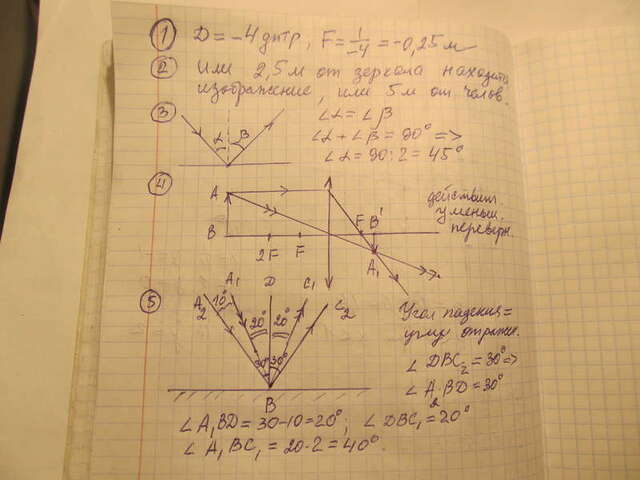 ① D = -4 дптр, F = 1/-4 = -0,25 м
② Или 2,5 м от зеркала находится
изображение, или 5 м от челов.
③ ∠α = ∠β
α β
∠α + ∠β = 90° =>
∠α = 90:2 = 45°
④ A
B 2F F F B' A₁
действит.
уменьш.
переверн.
⑤ A₂ 10° A₁ D C₁ C₂
20° 20°
30° 30°
B
Угол падения =
углу отражен.
∠DBC₂ = 30° =>
∠A₂BD = 30°
∠A₁BD = 30-10 = 20°; ∠DBC₁ = 20°
∠A₁BC₁ = 20·2 = 40°.